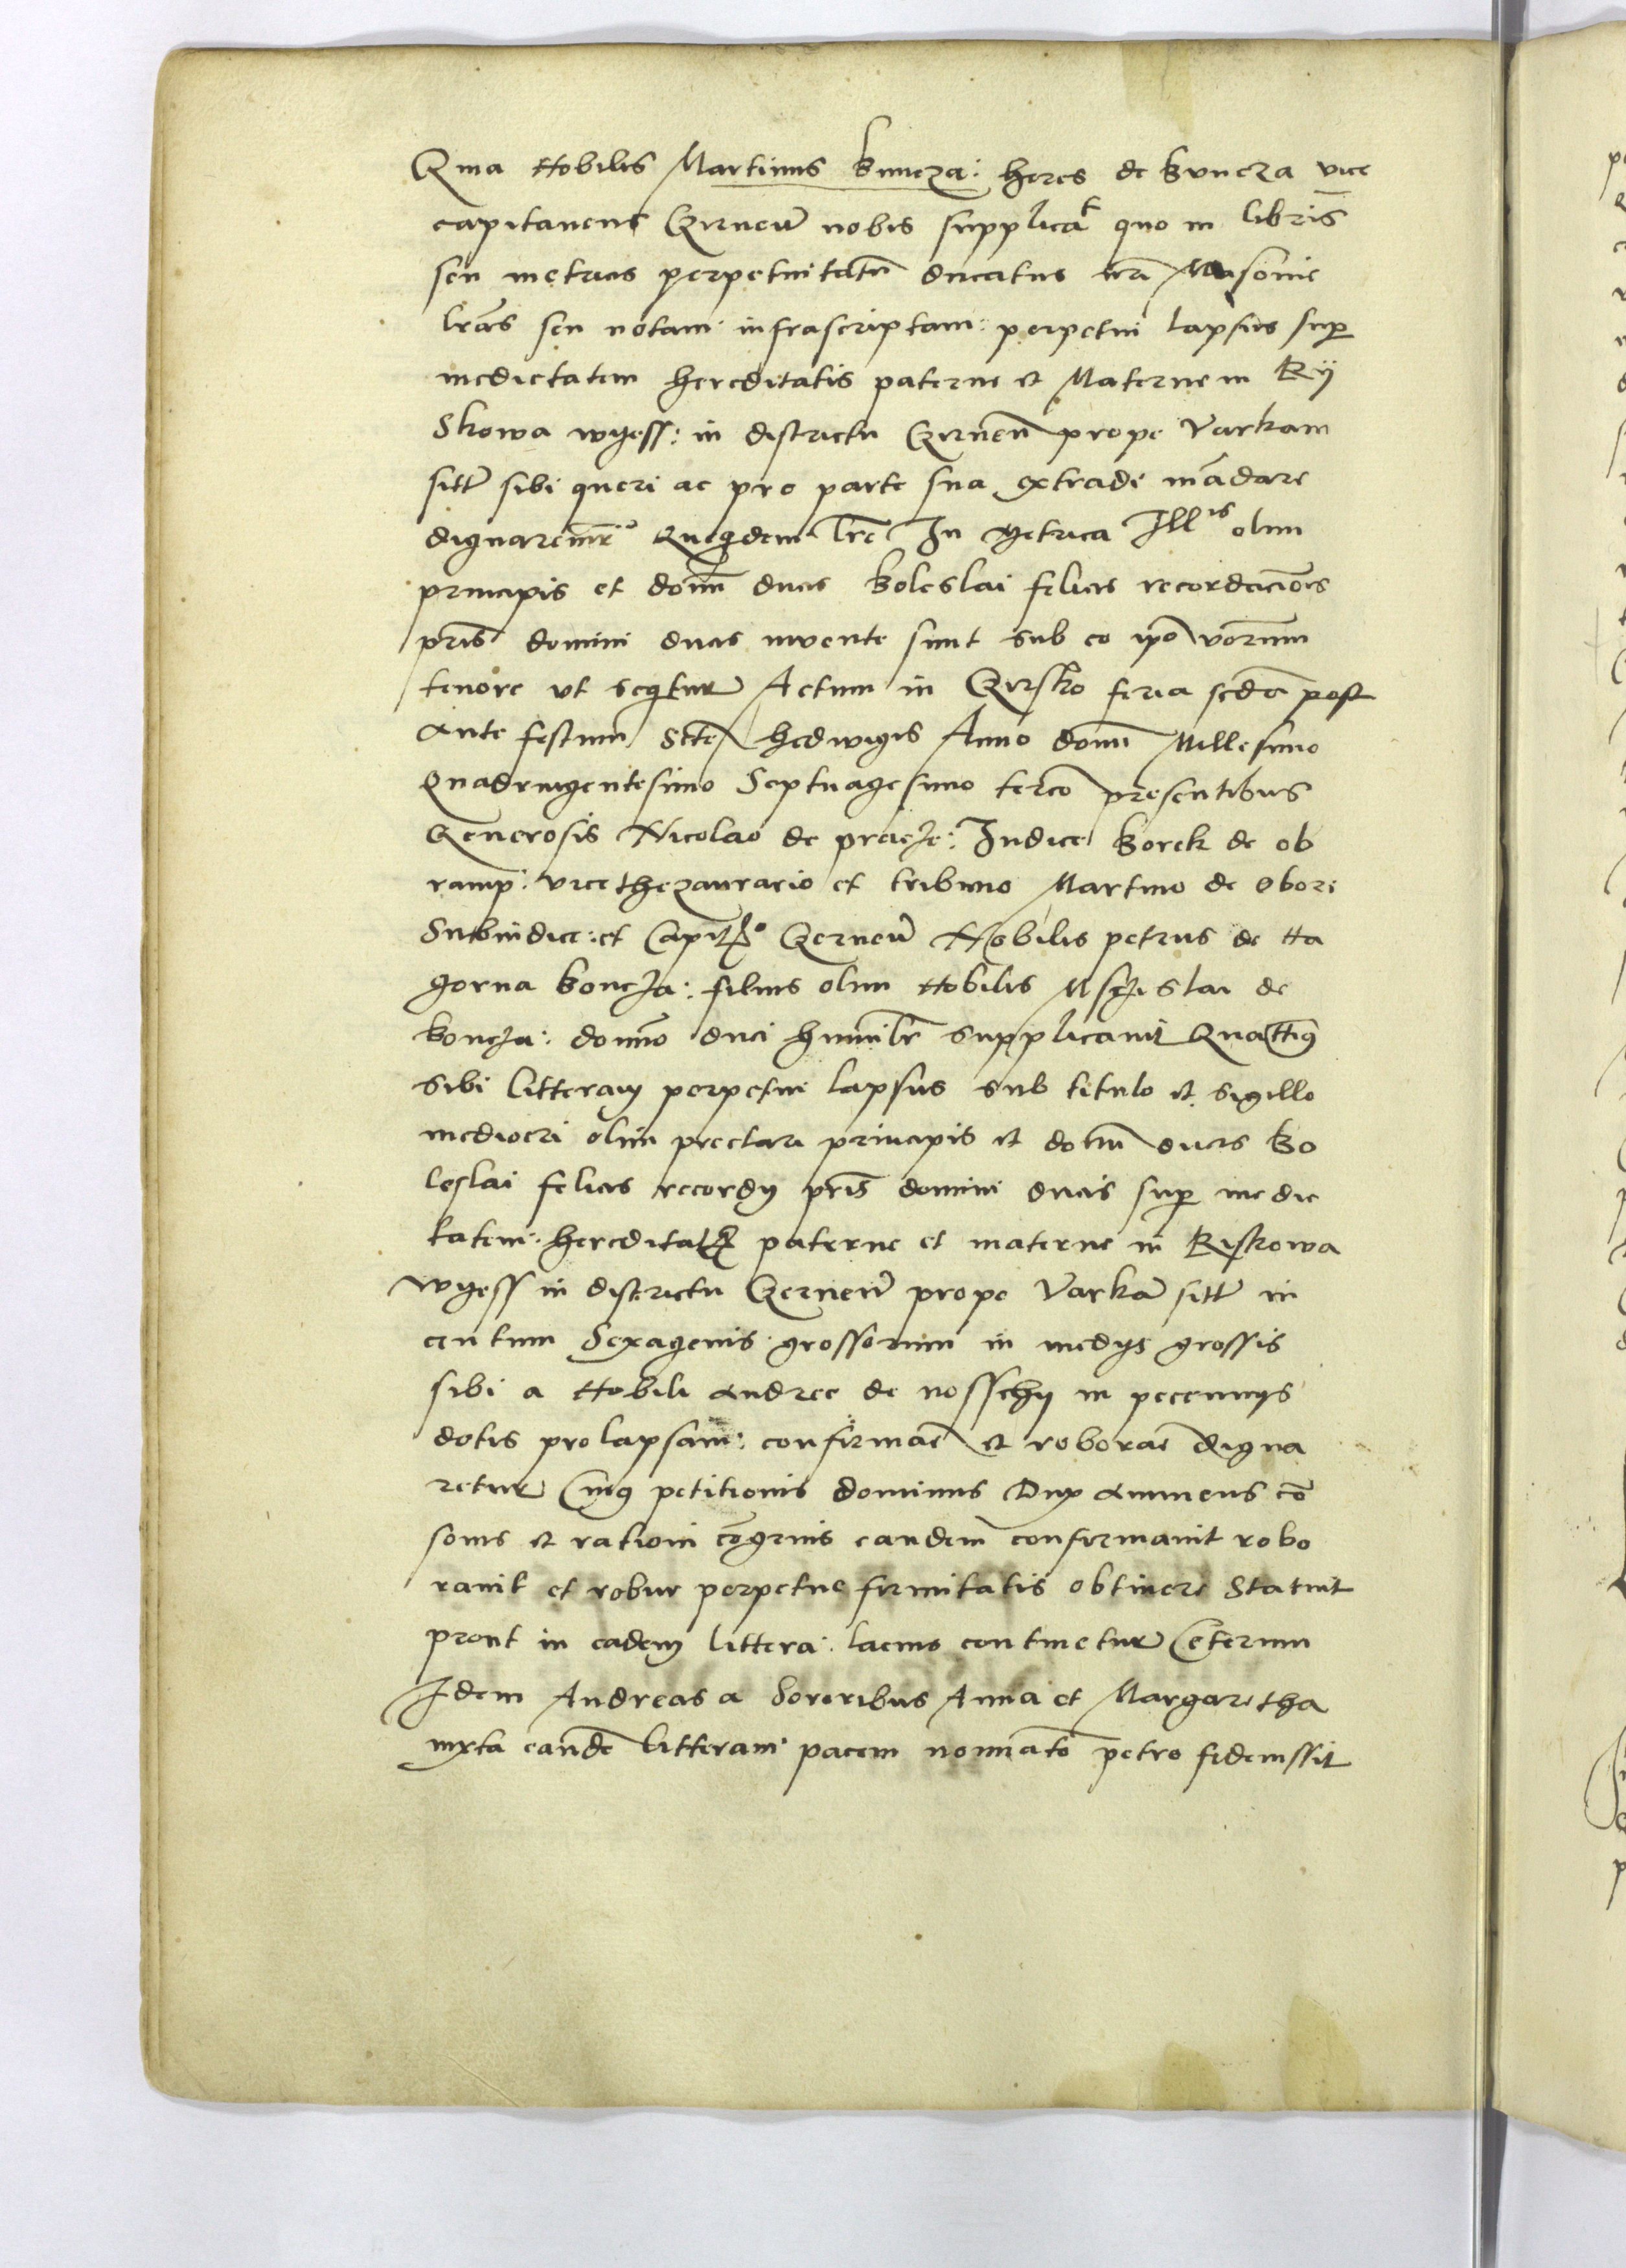 Quia Nobilis Martinus Buncza: heres de Buncza vice
capitaneus Czirneñ nobis supplicat quo in libris
seu metricis perpetuitatũ ducatus nrĩ Masovie
lrãs seu notam infrascriptam: perpetui lapsus sup
medietatem hereditatis paterne et Materne in Ry
Skowa wyess: in districtu Czirneñ prope Varkam
sitt sibi queri ac pro parte sua extradi mãdare
dignaremur Quequidem lre In Metrica Illis olim
principis et domĩ ducis Boleslai felicis recordaciõis
pris domini ducis invente sunt sub eo ipo verum
tenore ut sequitur Actum in Czirsko feria scda post
Ante festum Scte Hedwigis Anno domĩ Millesimo
Quadringentesimo Septuagesimo tercio presentibus
Generosis Nicolao de pracze: Iudice Borek de ob
ramp: vicethezaurario et tribuno Martino de Obori
Subiudice: et Capit° Czerneñ Nobilis petrus de Na
gorna Boncza: filius olim Nobilis Msczislai de
Boncza: domino duci humiltr supplicavit Quattinus
sibi litteram perpetui lapsus sub titulo et sigillo
mediocri olim preclari principis et domĩ ducis Bo
leslai felicis recordy pris domini ducis sup medie
tatem hereditatis paterne et materne in Ryskowa
wyess in districtu Czerneñ prope Varkã sitt in
centum Sexagenis grossorum in medys grossis
sibi a Nobili Andree de nosschy in peccunys
dotis prolapsam: confirmare et roborare digna
retur Cuius petitionis dominus Dux annuens cõ
sonis et rationi cõgruis eandem confirmavit robo
ravit et robur perpetue firmitatis obtinere Statuit
prout in eadem littera: lacius continetur Ceterum
Idem Andreas a Sororibus Anna et Margaretha
iuxta eandẽ litteram pacem nominato petro fideiussit